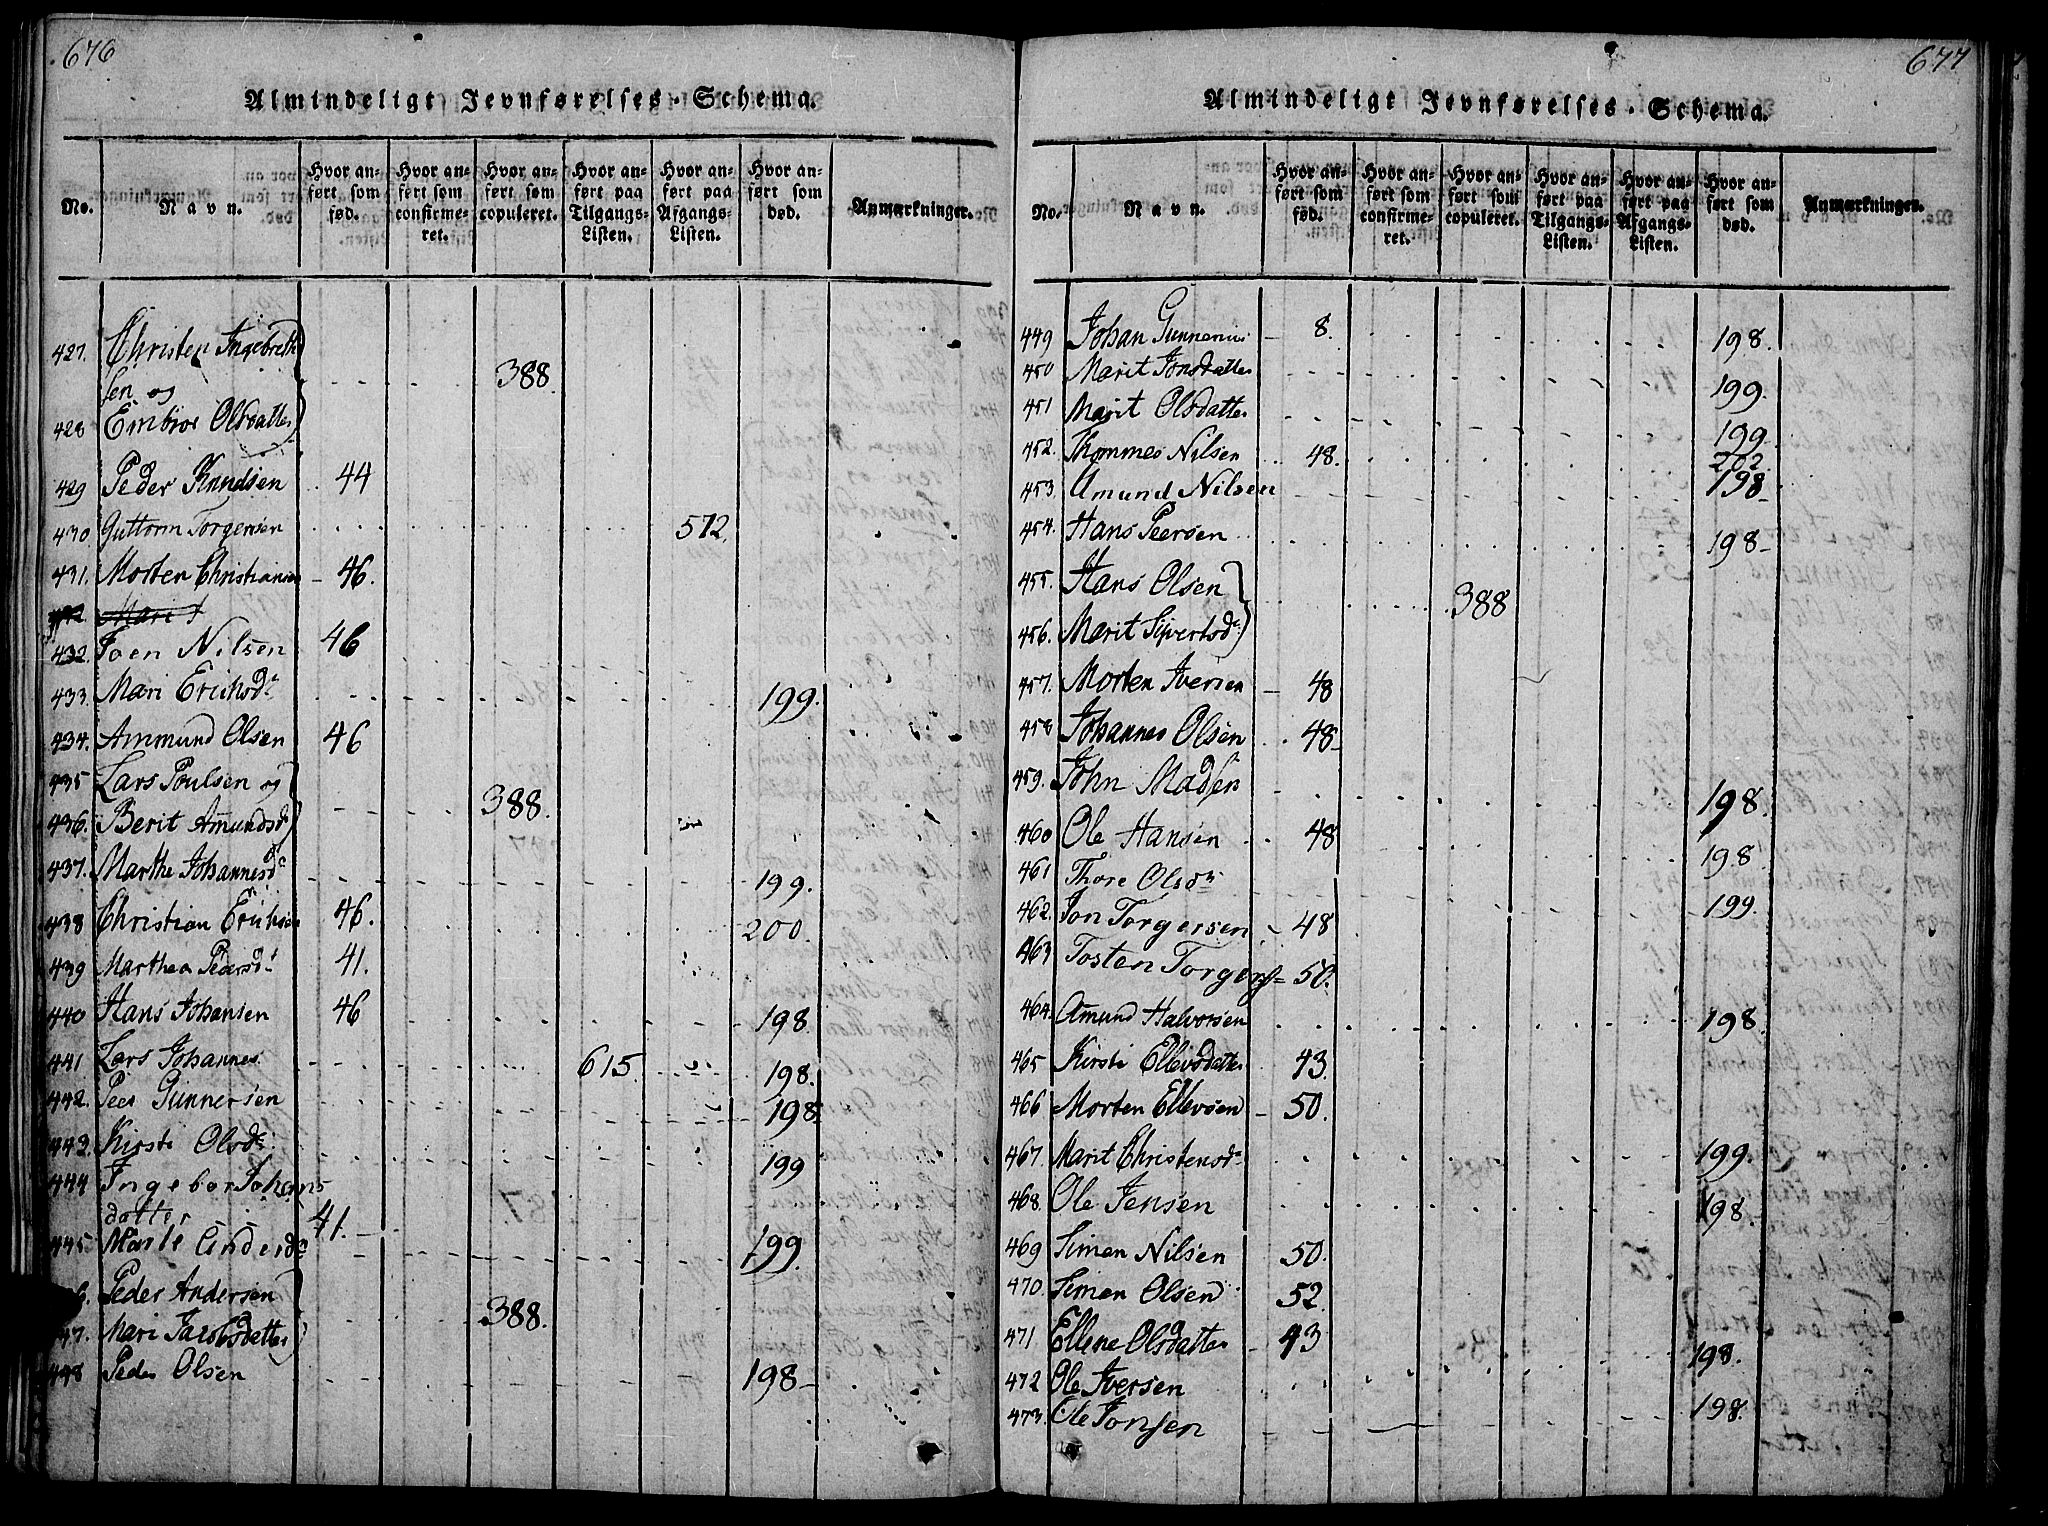 676
Almindeligt Jevnførelses-Schema.
No. Navn. Hvor anført som fød. Hvor anført som confirmeret. Hvor anført som copuleret. Hvor anført paa Tilgangs-Listen. Hvor anført paa Afgangs-Listen. Hvor anført som død. Anmærkninger.
427. Christen Ingebreth
sen og 388.
428 Embiør Olsdatter
429 Peder Knudsen 44
430. Guttorm Torgersen 512.
431. Morten Christiansen 46.
432 Marit
432. Joen Nilsen 46
433. Mari Erichsdr 199.
434. Ammund Olsen 46
435 Lars Poulsen og
388.
436. Berit Amundsd
437. Marthe Johannesdr 199.
438 Christian Erichsen 46. 200.
439 Marthea Pedersdr 41.
440 Hans Johansen 46 198.
441 Lars Johannes 615. 198.
442. Peer Gunnersen 198.
443. Kirsti Olsdr 199
444 Ingebor Johanns
datter 41.
445 Marte Andersdr 199.
Peder Andersen
388.
447. Mari Jacobsdatter
448 Peder Olsen 198
677
Almindeligt Jevnførelses-Schema.
No. Navn. Hvor anført som fød. Hvor anført som confirmeret. Hvor anført som copuleret. Hvor anført paa Tilgangs-Listen. Hvor anført paa Afgangs-Listen. Hvor anført som død. Anmærkninger.
449 Johan Gunnerius 8. 198.
450 Marit Jonsdatter 199.
451 Marit Olsdatter 199
452. Thommes Nilsen 48. 202.
453. Amund Nilsen 198
454. Hans Peersen 198
455. Hans Olsen
388
456. Marit Sivertsdr
457. Morten Iversen 48
458 Johannes Olsen 48
459. John Madsen 198.
460 Ole Hansen 48 198.
461 Thore Olsdr 199.
462. Jon Torgersen 48
463 Tosten Torgers 50.
464. Amund Halvorsen 198.
465 Kirsti Ellevsdatter 43.
466 Morten Ellevsen 50.
467. Marit Christensdr 199.
468. Ole Jensen 198.
469 Simen Nilsen 50.
470. Simen Olsen 52.
471 Ellene Olsdatter 43
472 Ole Iversen 198.
473. Ole Jonsen 198.